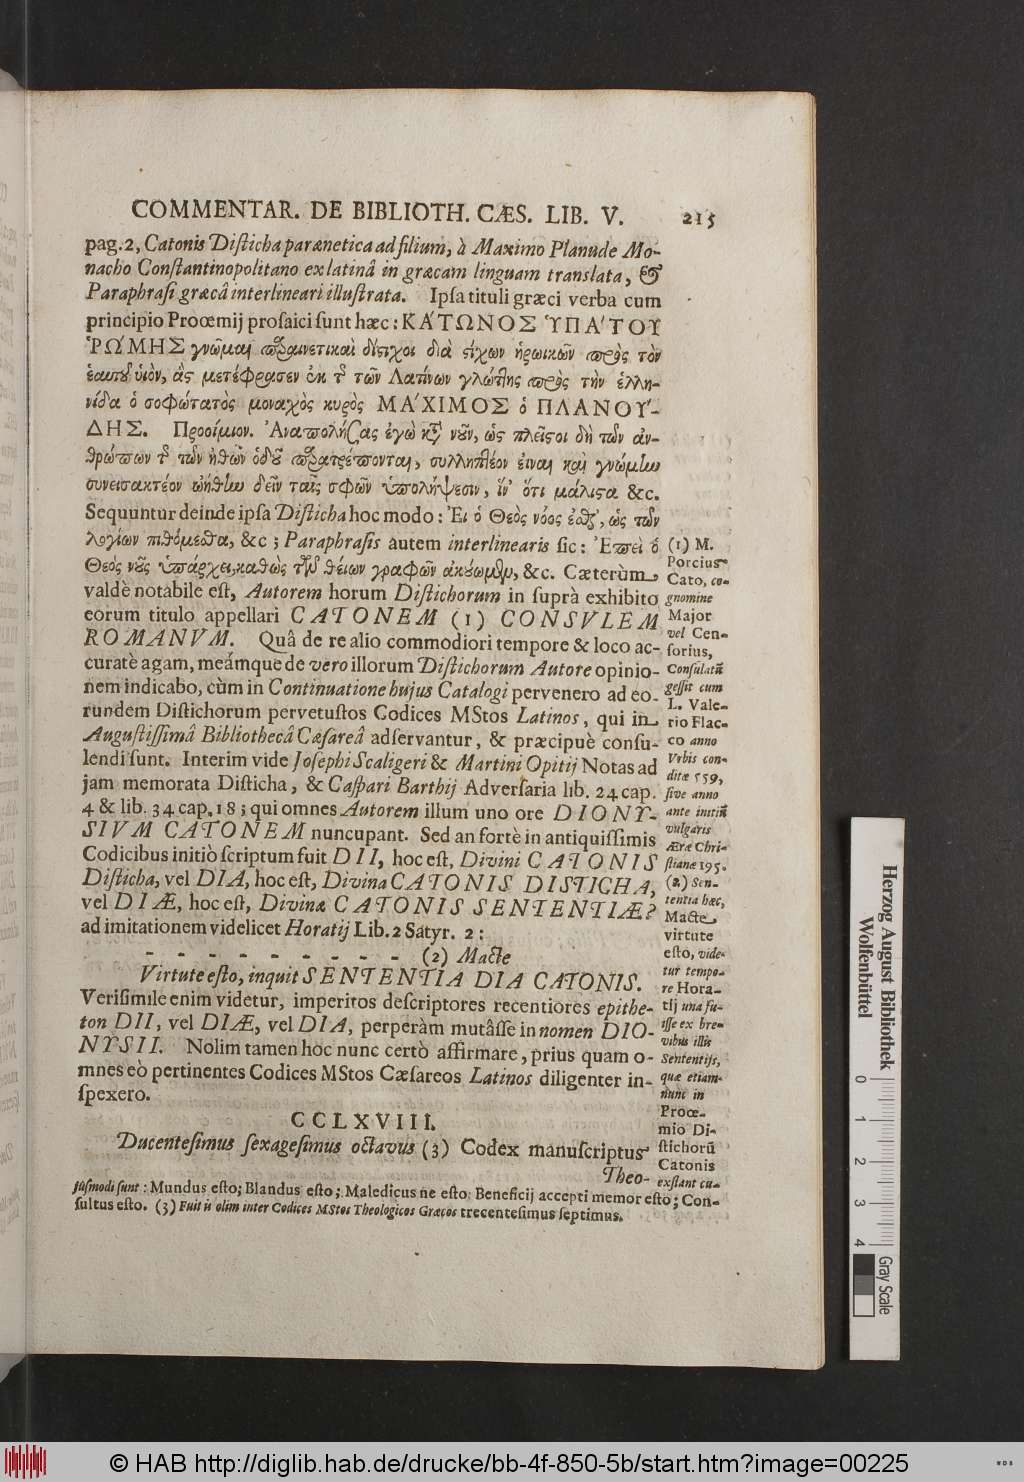 COMMENTAR. DE BIBLIOTH. CÆS. LIB. V. 215
pag. 2, Catonis Disticha parænetica ad filium, à Maximo Planude Mo-
nacho Constantinopolitano ex latinâ in græcam linguam translata, &
Paraphrasi græcâ interlineari illustrata. Ipsa tituli græci verba cum
principio Proœmij prosaici sunt hæc: ΚΑ΄ΤΩΝΟΣ ῾ΥΠΑ΄ΤΟΥ
῾ΡΩ΄ΜΗΣ γνῶμαι παραινετικαὶ δίστιχοι διὰ στίχων ἡρωικῶν πρὸς τὸν
ἑαυτοῦ ὑιὸν, ἃς μετέφρασεν ἐκ τ῀ τῶν Λατίνων γλώττης πρὸς τὴν ἑλλη-
νίδα ὁ σοφώτατὸς μοναχὸς κυρὸς ΜΑ΄ΧΙΜΟΣ ὁ ΠΛΑΝΟΥ΄-
ΔΗΣ. Προοίμιον. ᾿Αναπολήσας ἐγὼ κατὰ νοῦν, ὡς πλεῖστοι δὴ τῶν ἀν-
θρώπων τ῀ τῶν ἠθῶν ὁδοῦ παρατρέπονται, συλληπτέον εἶναι καὶ γνώμην
συνεισακτέον ᾠήθην δεῖν ταῖς σφῶν ὑπολήψεσιν, ἵν᾿ ὅτι μάλιστα &c.
Sequuntur deinde ipsa Disticha hoc modo: ᾿Ει ὁ Θεὸς νόος ἐστὶ, ὡς τῶν
λογίων πιθόμεσθα, &c; Paraphrasis autem interlinearis sic: ᾿Επεὶ ὁ
Θεὸς νοῦς ὑπάρχει, καθὼς τῶν θείων γραφῶν ἀκούομεν, &c. Cæterùm
valdè notabile est, Autorem horum Distichorum in suprà exhibito
eorum titulo appellari CATONEM (1) CONSVLEM
ROMANVM. Quâ de re alio commodiori tempore & loco ac-
curatè agam, meámque de vero illorum Distichorum Autore opinio-
nem indicabo, cùm in Continuatione hujus Catalogi pervenero ad eo-
rundem Distichorum pervetustos Codices MStos Latinos, qui in
Augustissimâ Bibliothecâ Cæsareâ adservantur, & præcipuè consu-
lendi sunt. Interim vide Josephi Scaligeri & Martini Opitij Notas ad
jam memorata Disticha, & Caspari Barthij Adversaria lib. 24 cap.
4 & lib. 34 cap, 18; qui omnes Autorem illum uno ore DIONY-
SIVM CATONEM nuncupant. Sed an fortè in antiquissimis
Codicibus initiò scriptum fuit DII, hoc est, Divini CATONIS
Disticha, vel DIA, hoc est, Divina CATONIS DISTICHA,
vel DIÆ, hoc est, Divinæ CATONIS SENTENTIÆ?
ad imitationem videlicet Horatij Lib. 2 Satyr. 2:
- - - - - - - - - (2) Macte
Virtute esto, inquit SENTENTIA DIA CATONIS.
Verisimile enim videtur, imperitos descriptores recentiores epithe-
ton DII, vel DIÆ, vel DIA, perperàm mutâsse in nomen DIO-
NYSII. Nolim tamen hoc nunc certò affirmare, prius quam o-
mnes eò pertinentes Codices MStos Cæsareos Latinos diligenter in-
spexero.
CCLXVIII.
Ducentesimus sexagesimus octavus (3) Codex manuscriptus
Theo-
(1) M.
Porcius
Cato, co-
gnomine
Major
vel Cen-
sorius,
Consulatũ
gessit cum
L. Vale-
rio Flac-
co anno
Vrbis con-
ditæ 559,
sive anno
ante initiũ
vulgaris
Æræ Chri-
stianæ 195.
(2) Sen-
tentia hæc,
Macte
virtute
esto, vide-
tur tempo-
re Hora-
tij una fu-
isse ex bre-
vibus illis
Sententijs,
quæ etiam-
nunc in
Proœ-
mio Di-
stichorũ
Catonis
exstant cu-
jusmodi sunt: Mundus esto; Blandus esto; Maledicus ne esto; Beneficij accepti memor esto; Con-
sultus esto. (3) Fuit is olim inter Codices MStos Theologicos Græcos trecentesimus septimus.
Herzog August Bibliothek
Wolfenbüttel
0 1 2 3 4
Gray Scale
© HAB http://diglib.hab.de/drucke/bb-4f-850-5b/start.htm?image=00225